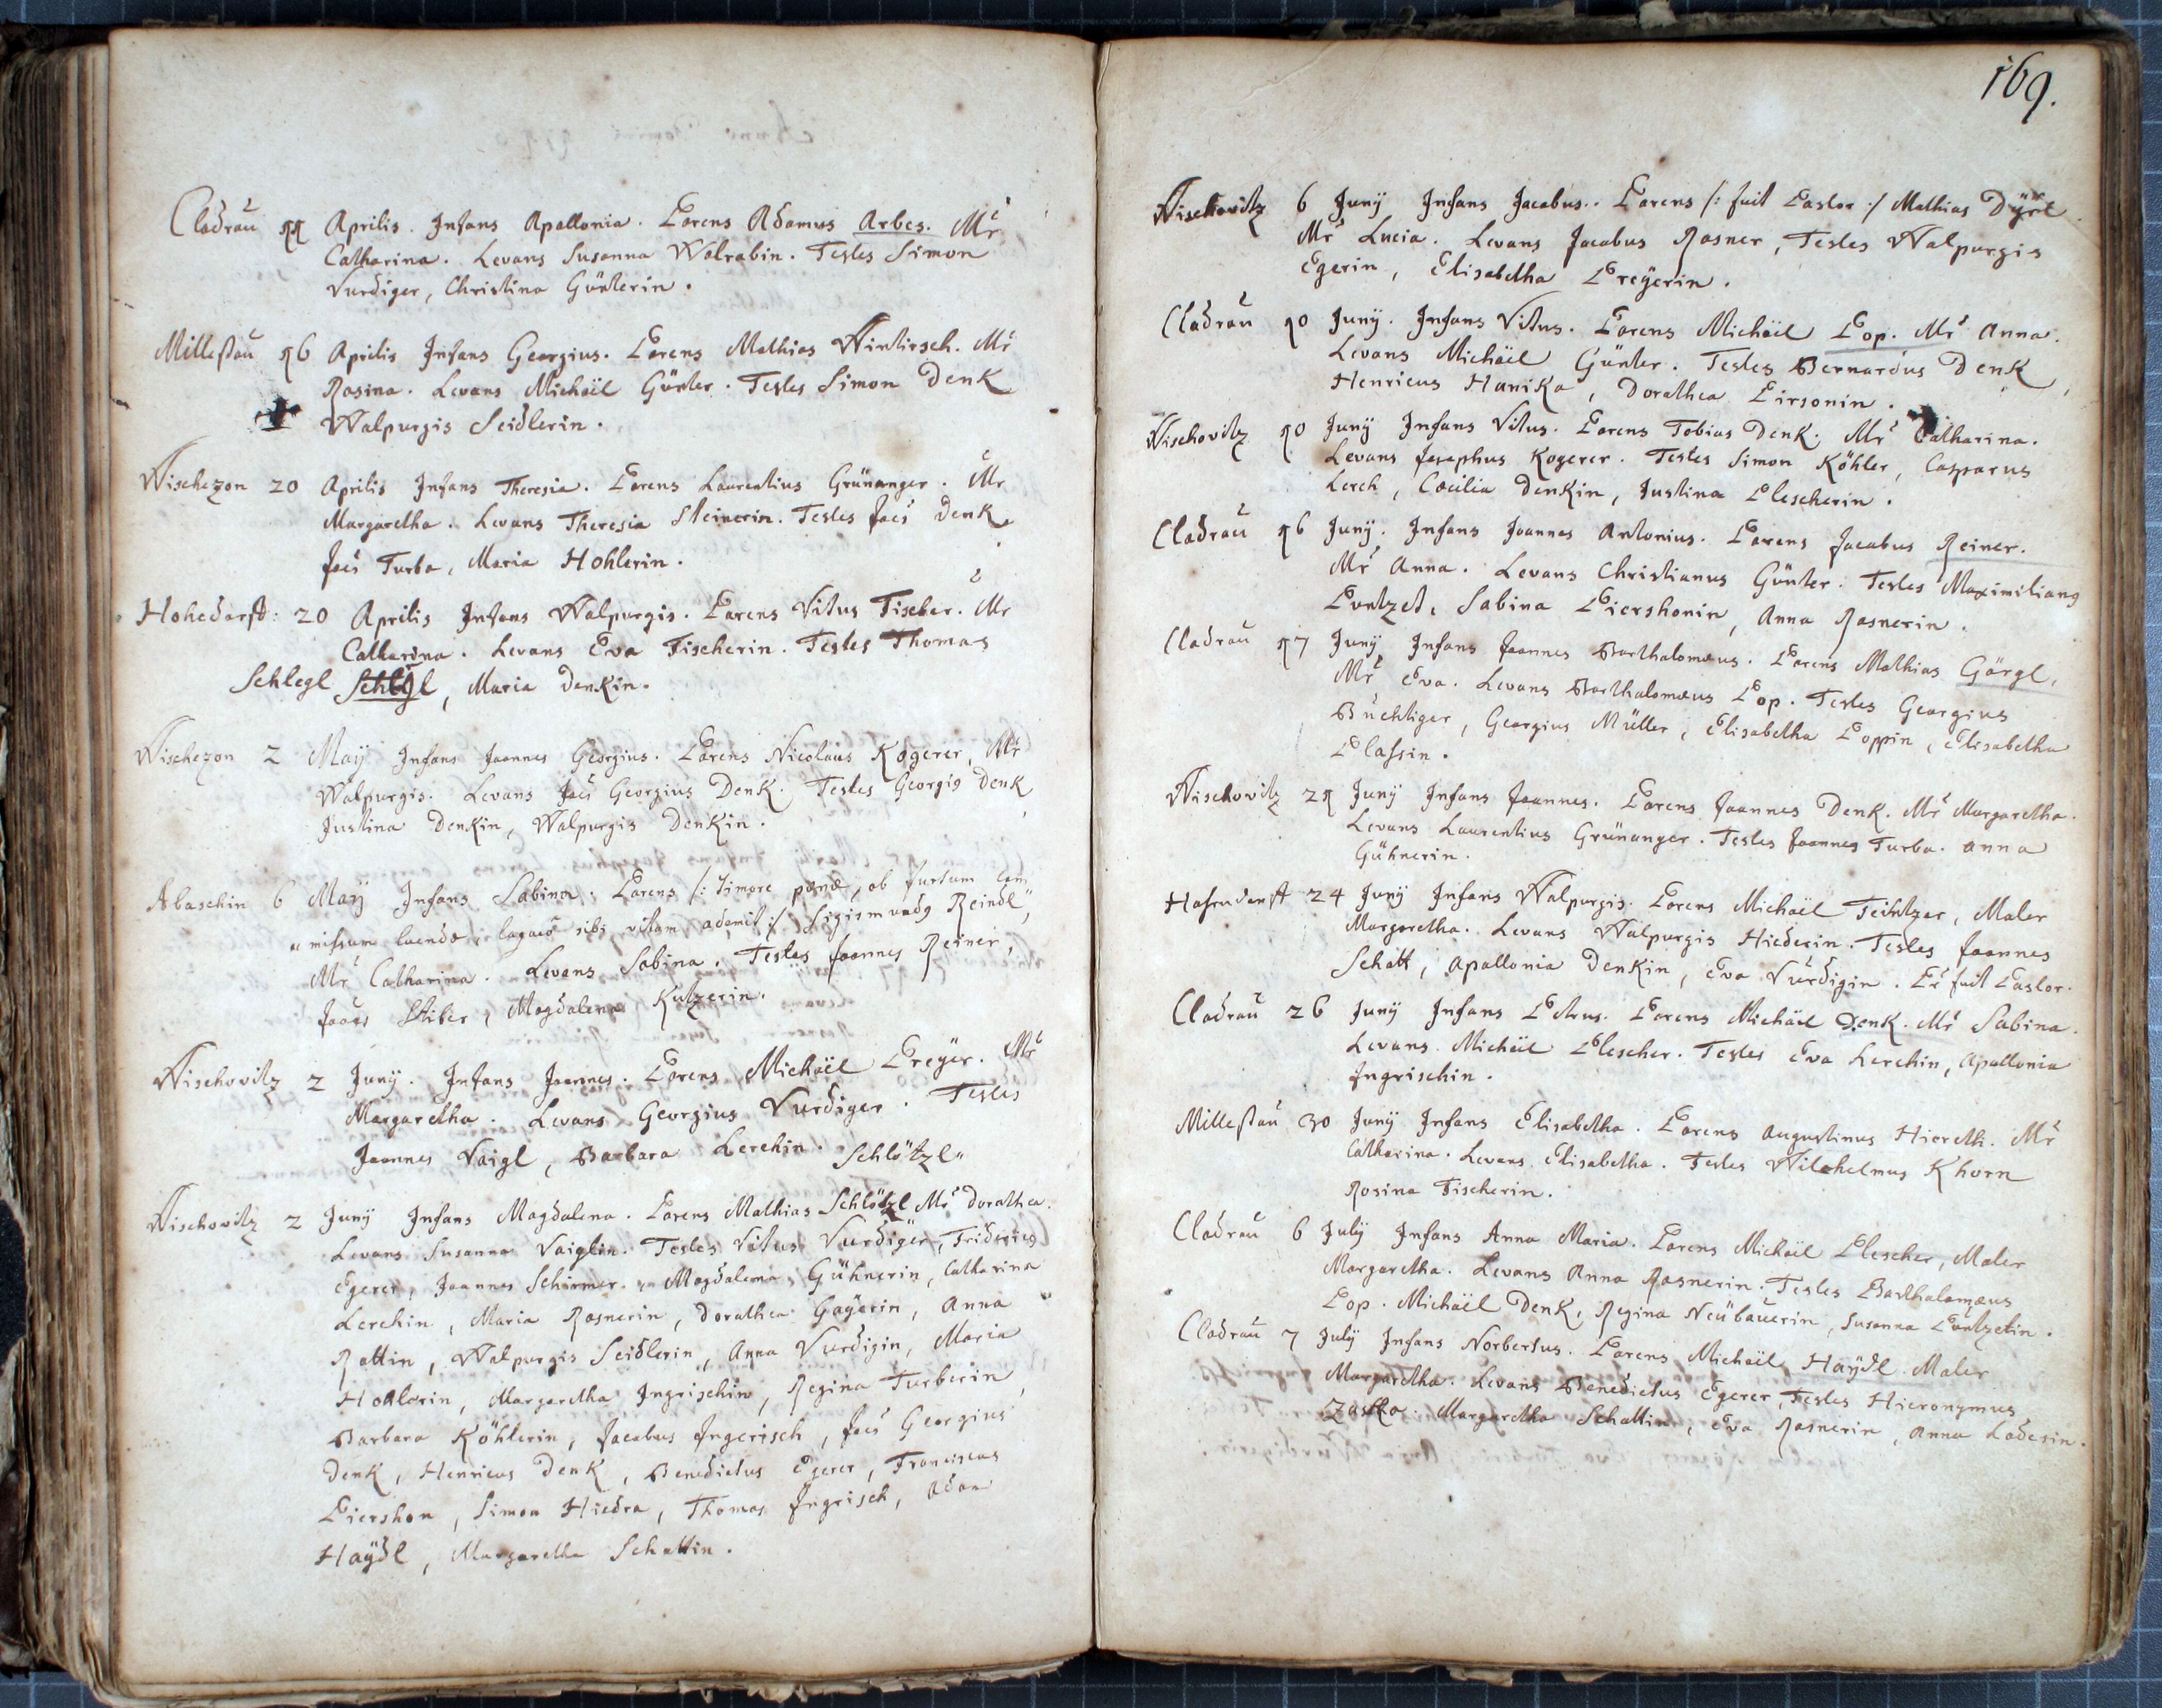 Cladrau 11 Aprilis. Infans Apollonia. Parens Adamus Arbes. Mr
Catharina. Levans Susanna Walrabin. Testes Simon
Vurdiger, Christina Günterin.
Millestau 16 Aprilis Infans Georgius. Parens Mathias Wintirsch. Mr
Rosina. Levans Michäel Günter. Testes Simon Denk
Walpurgis Seidlerin.
Wischezon 20 Aprilis Infans Theresia. Parens Laurentius Grünanger. Mr
Margaretha. Levans Theresia Steinerin. Testes Joës Denk
Joës Turba, Maria Hohlerin.
Hohedorff: 20 Aprilis Infans Walpurgis. Parens Vitus Fischer. Mr
Catharina. Levans Eva Fischerin. Testes Thomas
Schlegl Schlegl, Maria Denkin.
Wischezon 2 Maÿ Infans Joannes Georgius. Parens Nicolaus Kogerer, Mr
Walpurgis. Levans Joës Georgius Denk. Testes Georgig Denk
Justina Denkin, Walpurgis Denkin.
Abaschin 6 Maÿ Infans Sabina. Parens /: timore pænæ, ob furtum com
missum luendæ, laqueo sibi vitam ademit :/ Sigismundg Reindl
Mr Catharina. Levans Sabina. Testes Joannes Reiner,
Stiber, Magdalena Kutzerin.
Wischowitz 2 Junÿ. Infans Joannes. Parens Michäel Preÿer. Mr
Margaretha. Levans Georgius Vurdiger. Testes
Joannes Voigl, Barbara Lerchin. Schlötzl
Wischowitz 2 Junÿ Infans Magdalena. Parens Mathias Schlötzl Mr Dorathea.
Levans Susanna Voiglin. Testes Vitus Vurdiger, Fridericg
Egerer, Joannes Schirmer. Magdalena Gühnerin, Catharina
Lerchin, Maria Rosnerin, Dorathea Goÿerin, Anna
Rottin, Walpurgis Seidlerin, Anna Vurdigin, Maria
Hohlerin, Margaretha Ingrischin, Regina Turberin,
Barbara Köhlerin, Jacobus Ingerisch, Joës Georgius
Denk, Henricus Denk, Benedictus Egerer, Franciscus
Piershon, Simon Hiedra, Thomas Ingrisch, Adam
Haÿdl, Margaretha Schattin.
169.
Wischowitz 6 Junÿ Infans Jacobus. Parens /: fuit Pastor :/ Mathias Dÿrl.
Mr Lucia. Levans Jacobus Rosner, Testes Walpurgis
Egerin, Elisabetha Preÿerin.
Cladrau 10 Junÿ. Infans Vitus. Parens Michäel Pop. Mr Anna.
Levans Michäel Günter. Testes Bernardus Denk,
Henricus Hanika, Dorathea Pirsonin.
Wischovitz 10 Junÿ Infans Vitus. Parens Tobias Denk. Mr Catharina.
Levans Josephus Kogerer. Testes Simon Köhler, Casparus
Lerch, Cæcilia Denkin, Justina Plescherin.
Cladrau 16 Junÿ. Infans Joannes Antonius. Parens Jacobus Reiner.
Mr Anna. Levans Christianus Günter. Testes Maximiliang
Puntzet, Sabina Piershonin, Anna Rosnerin.
Cladrau 17 Junÿ Infans Joannes Bartholomæus. Parens Mathias Görgl,
Mr Eva. Levans Bartholomæus Pop. Testes Georgius
Büchtiger, Georgius Müller, Elisabetha Poppin, Elisabetha
Plassin.
Wischovitz 21 Junÿ Infans Joannes. Parens Joannes Denk. Mr Margaretha.
Levans Laurentius Grünanger. Testes Joannes Turba. Anna
Gühnerin.
24 Junÿ Infans Walpurgis. Parens Michäel Teintzer, Mater
Margaretha. Levans Walpurgis Hiederin. Testes Joannes
Schatt, Apollonia Denkin, Eva Vurdigin. Pr fuit Pastor.
Cladrau 26 Junÿ Infans Petrus. Parens Michäel Denk. Mr Sabina.
Levans Michäel Plescher. Testes Eva Lerchin, Apollonia
Ingrischin.
Millestau 30 Junÿ Infans Elisabetha. Parens Augustinus Hiereth. Mr
Catharina. Levans Elisabetha. Testes Wilchelmus Khorn
Rosina Fischerin.
Cladrau 6 Julÿ Infans Anna Maria. Parens Michäel Plescher, Mater
Margaretha. Levans Anna Rosnerin. Testes Bartholomæus
Pop. Michäel Denk, Regina Neübauerin, Susanna Puntzetin.
Cladrau 7 Julÿ Infans Norbertus. Parens Michäel Haÿdl. Mater
Margaretha. Levans Benedictus Egerer, Testes Hieronymus
Zastka. Margaretha Schattin, Eva Rosnerin, Anna Lodesin.